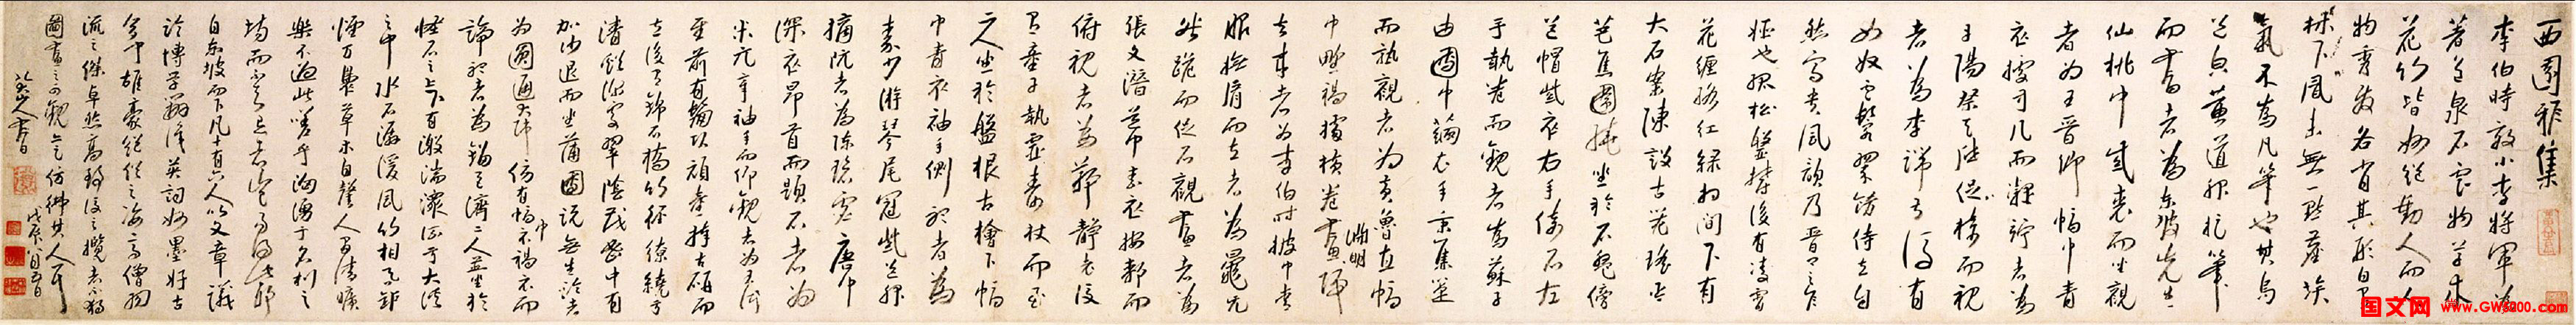 西園雅集
李伯時效小李將軍為
著色泉石雲物草木
花竹皆妙絕動人而人
物秀發各肖其形自有
林下風味無一點塵埃
氣不為凡筆也其烏
黃道服捉筆
而書者為東坡先生
仙桃巾紫裘而坐觀
者為王晉卿幅巾青
衣據方几而凝竚者為
丹陽蔡天啟捉椅而視
者為李端叔後有
女奴雲鬟翠飾侍立自
然富貴風韻乃晉卿之
姬也孤松盤鬱後有凌霄
花纏絡紅綠相間下有
大石案陳設古器瑤琴
芭蕉圍繞坐於石磐傍
道帽紫衣右手倚石左
手執卷而觀者為蘇子
由團巾繭衣手秉蕉箑
而熟觀者為黃魯直幅
巾野褐據橫卷畫淵明歸
去來者為李伯時披巾青
服撫肩而立者為晁无
咎跪而捉石觀畫者為
張文潛道巾素衣按膝而
俯視者為鄭靜老後
有童子執靈壽杖而立
二人坐於盤根古檜下幅
巾青衣袖手側聽者為
秦少游琴尾冠紫道服
摘阮者為陳碧虛唐巾
深衣昂首而題石者為
米元章袖手而仰觀者為王仲
至前有鬅頭頑童捧古硯而
立後有錦石橋竹徑繚繞于
清谿深處翠陰茂密中有
加沙退而坐蒲團說無生論者
為圓通大師傍有幅巾褐衣而
諦聽者為劉巨濟二人並坐於
怪石之上下有激湍潨流于大溪
之中水石潺湲風竹相吞爐
煙方裊草木自馨人間清曠
樂不過此嗟乎洶湧于名利之
場而不知退者豈易得此耶
自東坡而下凡十有六人以文章議
論博學辨識英詞妙墨好古
多聞雄豪絕俗之姿高僧羽
流之傑卓然高致後之攬者不獨
圖畫之可觀亦足仿彿其人耳
戊辰八月五日
八大山人書
国文网 www.GW5000.com